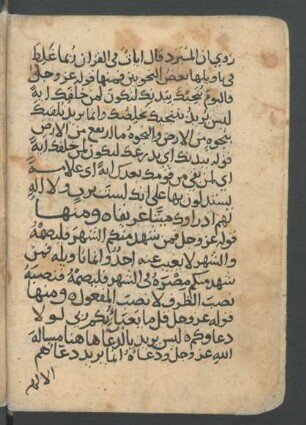 روي ان المبرد قال ايات في القران ربما غلط
في تاويلها بعض النحويين فمنها قوله عز وجل
فاليوم ننجيك ببدنك لتكون لمن خلفك اية
ليس يريد ننجيك نخلصك وانما يريد نلقيك
بنجوة من الارض والنجوة ما ارتفع من الارض
قوله ببدنك اي بدرعك لتكون لمن خلفك اية
اي لمن بقي من قومك بعدك اية اي علامة
يستدلون بها على انك لست برب ولا اله
لهم اذ راوك ميتا غريقا ومنها
قوله عز وجل فمن شهد منكم الشهر فليصمه
والشهر لا يغيب عنه احد وانما تاويله فمن
شهد منكم مصره في الشهر فليصمه فنصبه
نصب الظروف لا نصب المفعول ومنها
قوله عز وجل قل ما يعبا بكم ربي لولا
دعاوكم ليس يريد بالدعا هاهنا مسالة
الله عز وجل ودعاه انما يريد دعاهم